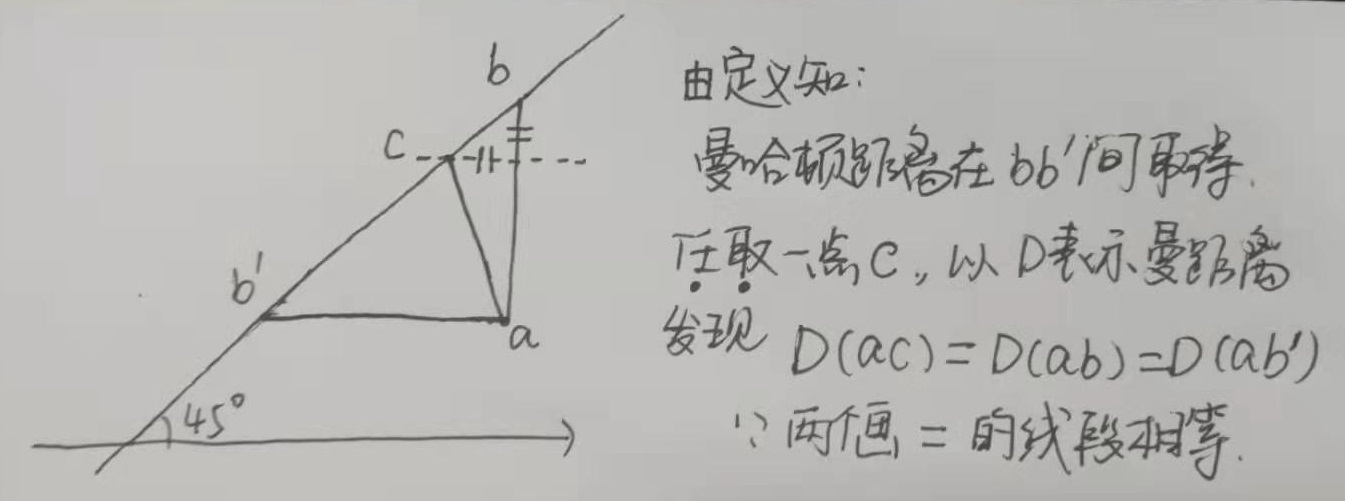 b
c
b'
a
45°
由定义知:
曼哈顿距离在bb'间取得.
任取一点C,以D表示曼距离
发现 D(ac)=D(ab)=D(ab')
∵两个画 = 的线段相等.